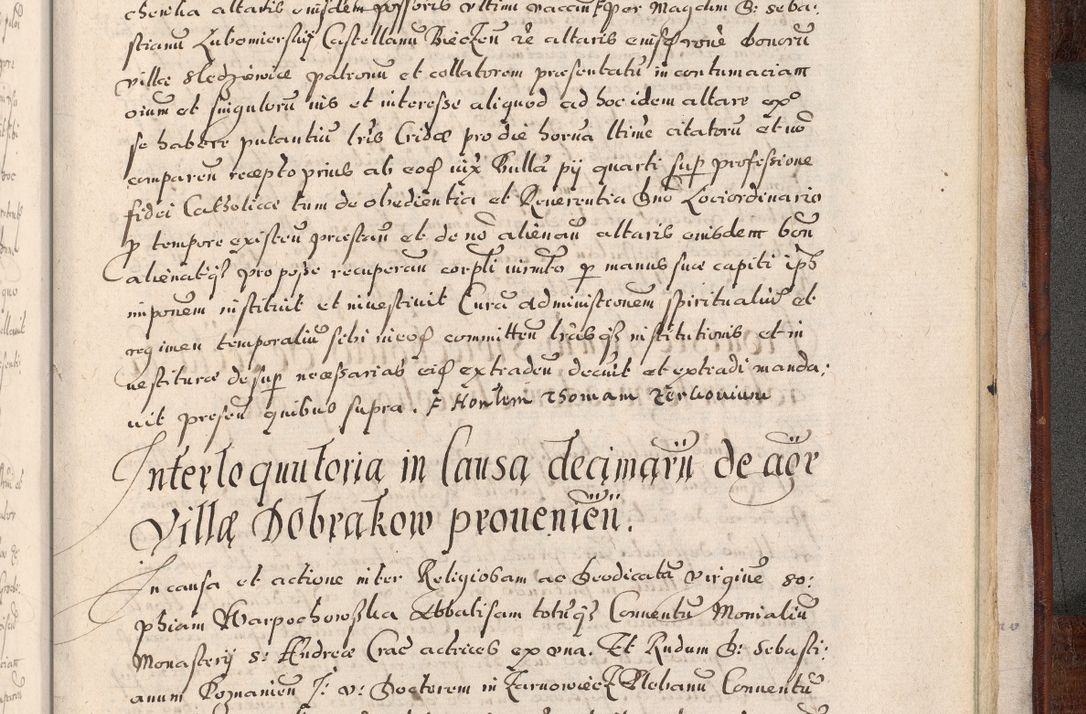 chowska altaris eiusdem possoris ultimi vacan per Magcum D: Seba:
stianu Lubomierskij Castellanu Biecen re altaris eiusq rone bonoru
villæ Sledziewice patronu et collatorem præsentatu in contumaciam
oium et singuloru ius et interesse aliquod ad hoc idem altare exº
se habere putantiu lris Cridæ pro die horna ltime citatoru et nō
comparen recepto prius ab eod iux Bulla pij quarti sup professione
fidei Catholicæ tum de obedientia et Reverentia Dno Lociordinario
p tempore existen præstan et de nō alienan altaris eiusdem bon
alienatisq pro posse recuperan corpli iurmto p manus suæ capiti ips
imponem instituit et investivit Cura administionem spiritualiu et
regimen temporaliu sibi in eod committen lrasq institutionis et in
vestituræ desup necessarias eid extraden decrevit et extradi manda:
vit presen quibus supra.
Interloquutoria in Causa decimaru de agr
Villæ Dobrakow provenien.
In causa et actione inter Religiosam ac Deodicata virgine So:
phiam Warpochowska Abbatisam totuq Conventu Monialiu
Monasterij S: Andreæ Crac actrices ex una. Et Rndum D: Sebasti:
anum Poznanien J: V: Doctorem in Tarnowiec Plebanu Conventu